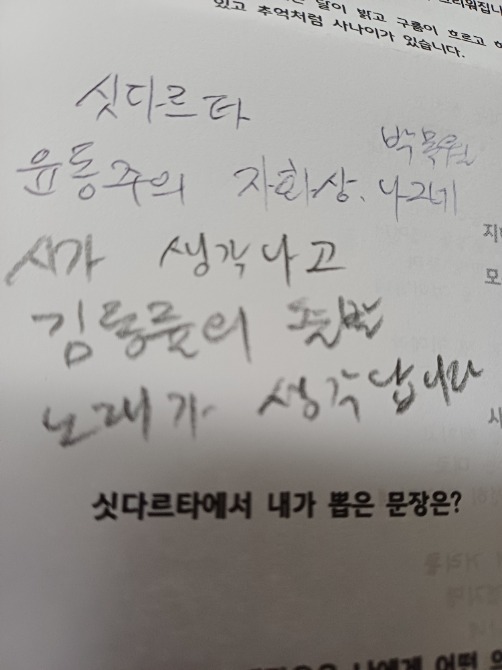 달이 밝고 구름이 흐르고
있고 추억처럼 사나이가 있습니다.
싯다르타
박목월
윤동주의 자화상. 나그네
시가 생각나고
김동률의 출발
노래가 생각납니다
싯다르타에서 내가 뽑은 문장은?
나에게 어떤